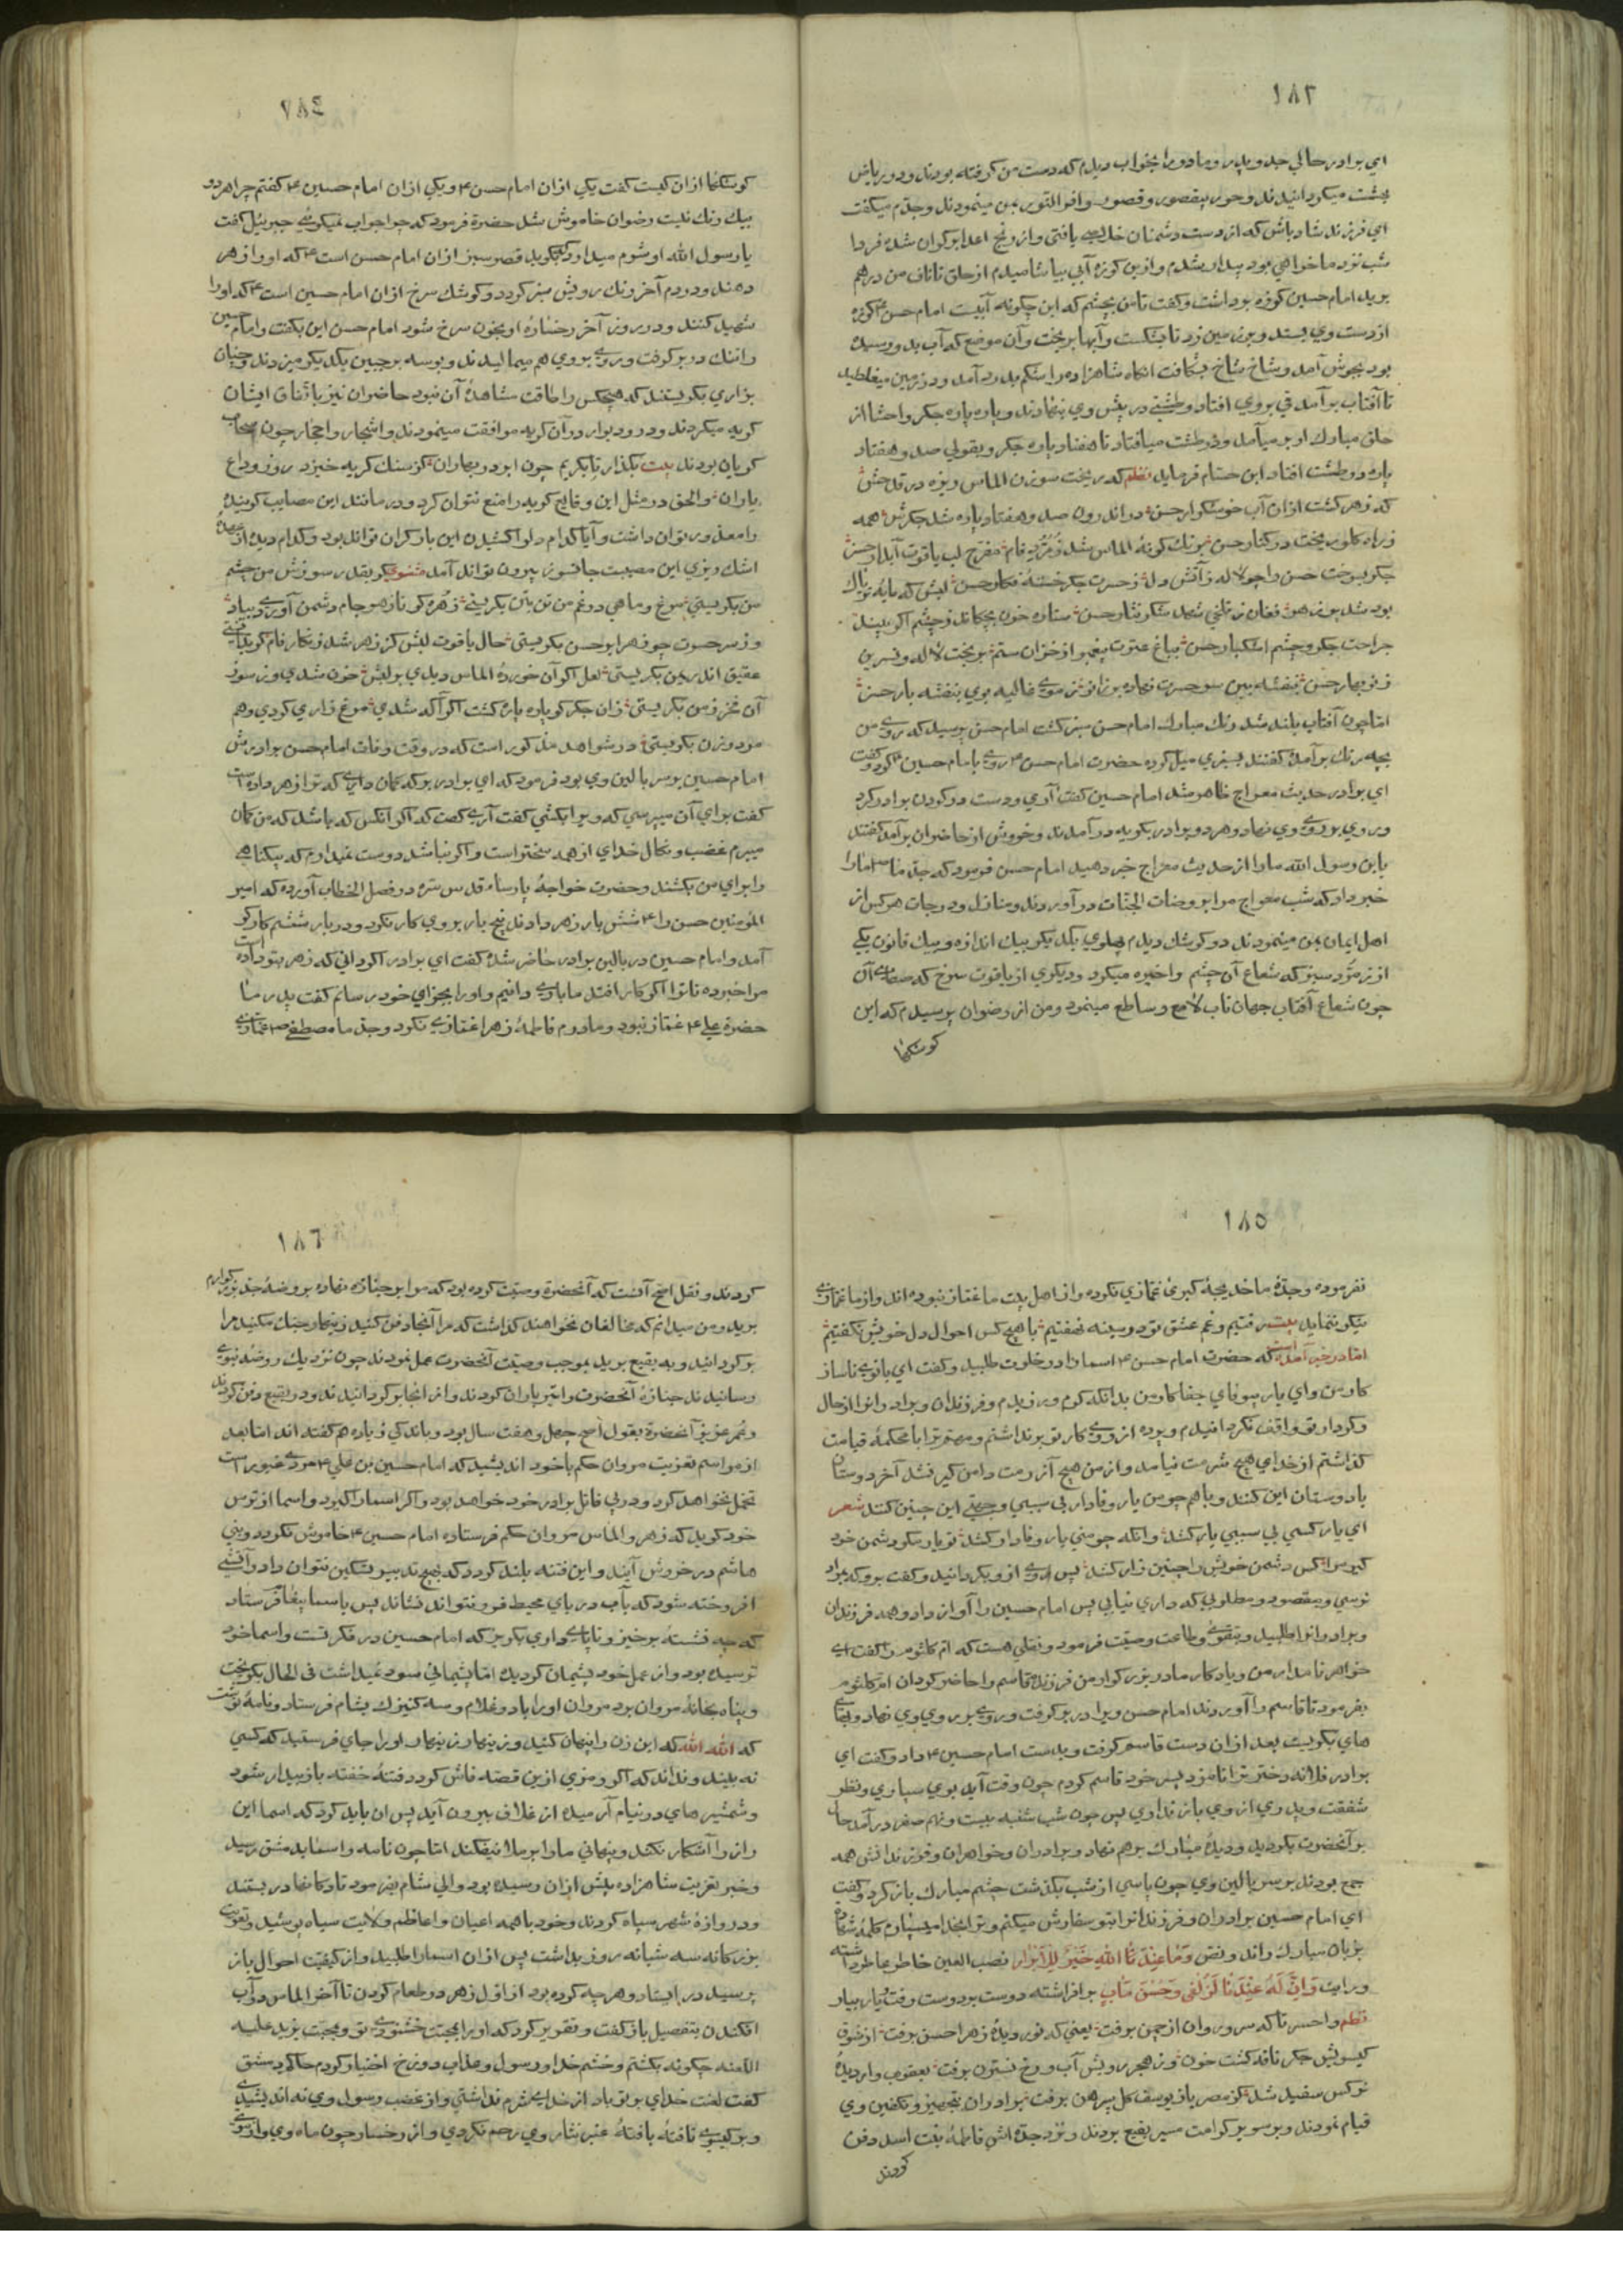 ١٨٣
ای برادر حالی جد و پدر و مادر را بخواب دیدم که دست من گرفته بودند و در ریاض
بهشت میگردانیدند و حور بقصور و قصور وافر النور بمن مینمودند و جدم میگفت
ای فرزند شاد باش که از دست دشمنان خلاصی یافتی و از رنج اعدا بر کران شدی فردا
شب نزد ما خواهی بود بیدار شدم و ازین کوزه آبی بیاشامیدم از حلق تا ناف من درهم
برید امام حسین کوزه برداشت و گفت تا من بچشم که این چگونه آبیست امام حسن ۴ کوزه
از دست وی بستد و بر زمین زد تا بشکست و آبها بریخت و آن موضع که آب بدو رسیده
بود بجوش آمد و شاخ شاخ بشکافت انگاه شاهزاده را شکم بدرد آمد و در زمین میغلطید
تا آفتاب برآمد قی بروی افتاد و طشتی در پیش وی بنهادند و پاره پاره جگر و احشا از
حلق مبارک او بر میآمد و در طشت میافتاد تا هفتاد پاره جگر و بقولی صد و هفتاد
پاره در طشت افتاد ابن حسام فرماید نظم که ریخت سوزن الماس ریزه در قدحش
که زهر گشت ازان آب خوشگوار حسن در اندرون صد و هفتاد پاره شد جگرش همه
ز راه گلو ریخت در کنار حسن برنگ گونهٔ الماس شد زمرد فام مفرح لب یاقوت آبدار حسن
جگر بسوخت حسن را چو لاله ز آتش دل ز حسرت جگر خستهٔ فگار حسن لبش که مایهٔ تریاک
بود شد پر زهر فغان ز تلخی شهد شکر نثار حسن ستاره خون بچکاند ز چشم اگر بیند
جراحت جگر و چشم اشکبار حسن بباغ عترت پیغمبر از خزان ستم بریخت لاله و نسرین
ز نوبهار حسن بنفشه بین سر حسرت نهاده بر زانو ز موی غالیه بوی بنفشه بار حسن
اما چون آفتاب بلند شد رنگ مبارک امام حسن سبز گشت امام حسن پرسید که روی من
بچه رنگ برآمده گفتند بسبزی میل کرده حضرت امام حسن ۴ روی بامام حسین ۴ کرد و گفت
ای برادر حدیث معراج ظاهر شد امام حسین گفت آری و دست در گردن برادر کرد
و روی بر روی وی نهاد و هر دو برادر بگریه درآمدند و خروش از حاضران برآمد گفتند
یابن رسول الله ما را از حدیث معراج خبر دهید امام حسن فرمود که جد ما ص ما را
خبر داد که شب معراج مرا بروضات الجنات درآوردند و منازل و درجات هر کس از
اهل ایمان بمن مینمودند دو کوشک دیدم پهلوی یکدیگر بیک اندازه و بیک قانون یکی
از زمرد سبز که شعاع آن چشم را خیره میکرد و دیگری از یاقوت سرخ که صفای آن
چون شعاع آفتاب جهان تاب لامع و ساطع مینمود من از رضوان پرسیدم که این
کوشکها
١٨٤
کوشکها ازان کیست گفت یکی ازان امام حسن ۴ و یکی ازان امام حسین ۴ گفتم چرا هر دو
بیک رنگ نیست رضوان خاموش شد حضرة فرمود که چرا جواب نمیگویی جبرئیل گفت
یا رسول الله او شرم میدارد که بگوید قصر سبز ازان امام حسن است ۴ که او را زهر
دهند و در دم آخر رنگ رویش سبز گردد و کوشک سرخ ازان امام حسین است ۴ که او را
شهید کنند و در روز آخر رخسارهٔ او بخون سرخ شود امام حسن این بگفت و امام حسین
را تنگ در بر گرفت و روی بر روی هم میمالیدند و بوسه بر جبین یکدیگر میزدند و چنان
بزاری بگریستند که هیچکس را طاقت مشاهدهٔ آن نبود حاضران نیز باتفاق ایشان
گریه میکردند و در و دیوار دران گریه موافقت مینمودند و اشجار و احجار چون سحاب
گریان بودند بیت بگذار تا بگریم چون ابر در بهاران کز سنگ گریه خیزد روز وداع
یاران و الحق در مثل این وقایع گریه را منع نتوان کرد و در مانند این مصایب گرینده
را معذور توان داشت و آیا کدام دل را کشیدن این بار گران تواند بود و کدام دیده از عهدهٔ
اشک ریزی این مصیبت جانسوز بیرون تواند آمد مثنوی گر بقدر سوزش من چشم
من بگریستی مرغ و ماهی در غم من تن بتن بگریستی زهره گر نازهر جام دشمن آوردی بیاد
وز سر حسرت چو زهرا بر حسن بگریستی حال یاقوت لبش کز زهر شد زنگار فام گر بدانستی
عقیق اندر یمن بگریستی لعل اگر آن خوردهٔ الماس دیدی بر لبش خون شدی وز سوز
آن مخزون من بگریستی زان جگر کو پاره پاره گشت اگر آگه شدی مرغ زاری کردی و هم
مرد و زن بگریستی در شواهد مذکور است که در وقت وفات امام حسن برادرش
امام حسین بر سر بالین وی بود فرمود که ای برادر بر که گمان داری که ترا زهر داده است
گفت برای آن میپرسی که ویرا بکشی گفت آری گفت که اگر آنکس که باشد که من گمان
میبرم غضب و نکال خدای از همه سختر است و اگر نباشد دوست نمیدارم که بیگناهی
را برای من بکشند و حضرت خواجهٔ پارساء قدس سره در فصل الخطاب آورده که امیر
المؤمنین حسن را ۴ شش بار زهر دادند پنج بار بر وی کار نکرد و در بار ششم کارگر
آمد و امام حسین در بالین برادر حاضر شده گفت ای برادر اگر دانی که زهر بتو که داده است
مرا خبر ده تا ترا اگر کار افتد ما باری دانیم و او را بجزای خود رسانم گفت پدر ما
حضرة علی ۴ غماز نبود و مادرم فاطمهٔ زهرا غمازی نکرد و جد ما مصطفی ص غمازی
١٨٥
نفرموده و جدهٔ ما خدیجهٔ کبری غمازی نکرده و از اهل بیت ما غماز نبوده اند و از ما غمازی
نیکو ننماید بیت رفتیم و غم عشق تو در سینه نهفتیم با هیچ کس احوال دل خویش نگفتیم
اما در خبر آمده است که حضرت امام حسن ۴ اسما را در خلوت طلبید و گفت ای بانوی ناساز
کار من و ای یار بیوفای جفاکار من بدانکه کرم ورزیدم و فرزندان و برادرانرا از حال
و کردار تو واقف نگردانیدم و پرده از روی کار تو برنداشتم و مهم ترا با محکمهٔ قیامت
گذاشتم از خدای هیچ شرمت نیامد و از من هیچ آزرمت دامن گیر نشد آخر دوستان
با دوستان این کنند و با هم چو من یار وفادار بی سببی و جهتی این چنین کنند شعر
ای یار کسی بی سببی یار کشد وانکه چو منی یار وفادار کشد تو یار مگو دشمن خود
گیر مرا کس دشمن خویش را چنین زار کشد پس روی ازو بگردانید و گفت برو که بمراد
نرسی و بمقصود و مطلوبی که داری نیابی پس امام حسین را آواز داد و همه فرزندان
و برادرانرا طلبید و بتقوی و طاعت وصیت فرمود و نقلی هست که ام کلثوم را گفت ای
خواهر نامدار من و یادگار مادر بزرگوار من فرزندم قاسم را حاضر گردان ام کلثوم
بفرمود تا قاسم را آوردند امام حسن ویرا در بر گرفت و روی بر روی وی نهاد و بهای
های بگریست بعد ازان دست قاسم گرفت و بدست امام حسین ۴ داد و گفت ای
برادر فلانه دختر ترا نامزد پسر خود قاسم کردم چون وقت آید بوی سپاری و نظر
شفقت و پدری از وی باز نداری پس چون شب شنبه بیست و نهم صفر درآمد حال
بر آنحضرت بگردید و دیدهٔ مبارک برهم نهاد و برادران و خواهران و فرزندانش همه
جمع بودند بر سر بالین وی چون پاسی از شب بگذشت چشم مبارک باز کرد و گفت
ای امام حسین برادران و فرزندانرا بتو سفارش میکنم و ترا بخدا میسپارم کلمهٔ شهادة
بزبان مبارک راند و نص وَمَا عِنْدَ اللهِ خَيْرٌ لِلْأَبْرَارِ نصب العین خاطر عاطر داشته
و رایت وَإِنَّ لَهُ عِنْدَنَا لَزُلْفَى وَحُسْنَ مَآبٍ برافراشته دوست بر دوست رفت و یار بیار
نظم واحسرتا که سرو روان از چمن برفت یعنی که نور دیدهٔ زهرا حسن برفت از شوق
گیسویش جگر نافه گشت خون وز هجر رویش آب رخ نسترن برفت یعقوب وار دیدهٔ
نرگس سفید شد کز مصر باز یوسف گل پیرهن برفت برادران بتجهیز و تکفین وی
قیام نمودند و بر سریر کرامت مسیر بقیع بردند و نزد جدهٔ اش فاطمهٔ بنت اسد دفن
کردند
١٨٦
کردند و نقل اصح آنست که آنحضرة وصیت کرده بود که مرا بر جنازه نهاده بروضهٔ جد بزرگوارم
برید و من میدانم که مخالفان نخواهند گذاشت که مرا آنجا دفن کنید زینهار جنگ مکنید مرا
برگردانید و به بقیع برید بموجب وصیت آنحضرت عمل نمودند چون نزدیک روضهٔ نبوی
رسانیدند جنازهٔ آنحضرت را تیر باران کردند و از انجا برگردانیدند و در بقیع دفن کردند
و عمر عزیز آنحضرة بقول اصح چهل و هفت سال بود و باندکی زیاده هم گفته اند اما بعد
از مراسم تعزیت مروان حکم با خود اندیشید که امام حسین بن علی ۴ مردی غیور است
تحمل نخواهد کرد و در پی قاتل برادر خود خواهد بود و اگر اسما را گیرد و اسما از ترس
خود گوید که زهر و الماس مروان حکم فرستاده امام حسین ۴ خاموش نگردد و بنی
هاشم در خروش آیند و این فتنه بلند گردد که بهیچ تدبیر تسکین نتوان داد و آتشی
افروخته شود که بآب دریای محیط فرو نتواند نشاند پس باسما پیغام فرستاد
که چه نشستهٔ برخیز و تا پای داری بگریز که امام حسین در فکر تست و اسما خود
ترسیده بود و از عمل خود پشیمان گردیده اما پشیمانی سود نمیداشت فی الحال بگریخت
و پناه بخانهٔ مروان برد مروان او را با دو غلام و سه کنیزک بشام فرستاد و نامهٔ نوشت
که الله الله که این زن را پنهان کنید و زینهار زینهار او را جای فرستید که کسی
نه بیند و نداند که اگر رمزی ازین قصه فاش گردد فتنهٔ خفته باز بیدار شود
و شمشیرهای در نیام آرمیده از غلاف بیرون آید پس ان باید کرد که اسما این
راز را آشکار نکند و پنهانی ما را بر ملا نیفکند اما چون نامه و اسما بدمشق رسید
و خبر تعزیت شاهزاده پیش ازان رسیده بود والی شام بفرمود تا دکانها در بستند
و دروازهٔ شهر سیاه کردند و خود با همه اعیان و اعاظم ولایت سیاه پوشید و تعزیت
بزرگانه سه شبانه روز بداشت پس ازان اسما را طلبید و از کیفیت احوال باز
پرسید در ایستاد و هر چه کرده بود از اول زهر در طعام کردن تا آخر الماس در آب
افکندن بتفصیل باز گفت و تقریر کرد که او را بجهت خشنودی تو و محبت یزید علیه
اللعنه چگونه بکشتم و خشم خدا و رسول و عذاب دوزخ اختیار کردم حاکم دمشق
گفت لعنت خدای بر تو باد از خدای شرم نداشتی و از غضب رسول وی نه اندیشیدی
و بر گیسوی تافتهٔ بافتهٔ عنبر نثار وی رحم نکردی و از رخسار چون ماه وی و از روی